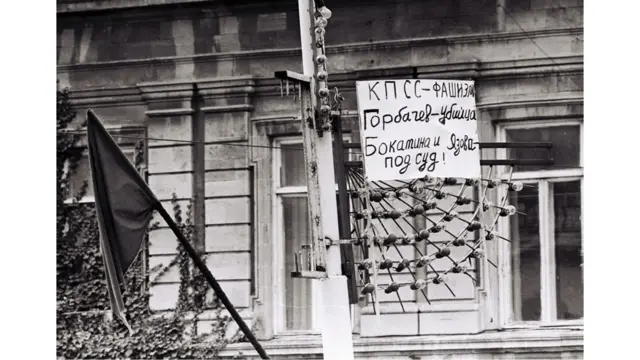 КПСС-ФАШИЗМ
Горбачев-Убийца
Бокатина и Язова-
под суд!